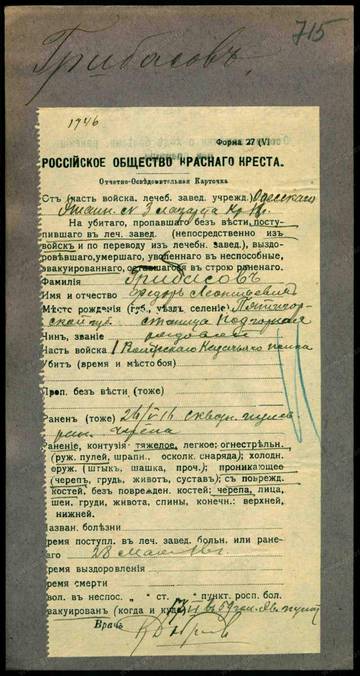 715
Грибасовъ
1746
Форма 27 (VI
РОССІЙСКОЕ ОБЩЕСТВО КРАСНАГО КРЕСТА.
Отчетно-Освѣдомительная Карточка
Отъ (часть войска. лечеб. завед. учрежд.) Одесскаго
№ 3 лазарета Кр. Кр.
На убитаго, пропавшаго безъ вѣсти, посту-
пившаго въ леч. завед. (непосредственно изъ
войскъ и по переводу изъ лечебн. завед.), выздо-
ровѣвшаго, умершаго, уволеннаго въ неспособные,
эвакуированнаго, оставшагося въ строю раненаго.
Фамилія Грибасовъ
Имя и отчество Федоръ Леонтьевичъ
Мѣсто рожденія (губ., уѣзд. селеніе)
станица Подгорная
Чинъ, званіе рядовой
Часть войска 1 Казачьяго полка
Убитъ (время и мѣсто боя)
Проп. безъ вѣсти (тоже)
Раненъ (тоже) 26/V 16 сквозн. пулев.
ран. черепа
Раненіе, контузія: тяжелое, легкое; огнестрѣльн.
(руж. пулей, шрапн., осколк. снаряда); холодн.
оруж. (штыкъ, шашка, проч.); проникающее
(черепъ, грудь, животъ, суставъ); съ поврежд.
костей, безъ поврежден. костей; черепа, лица,
шеи, груди, живота, спины, конечн.: верхней,
нижней.
Назван. болѣзни
Время поступл. въ леч. завед. больн. или ране-
наго 28 Мая
Время выздоровленія
Время смерти
Увол. въ неспос. „ " ст. „ " пункт. росп. бол.
Эвакуированъ (когда и куда)
Врачъ